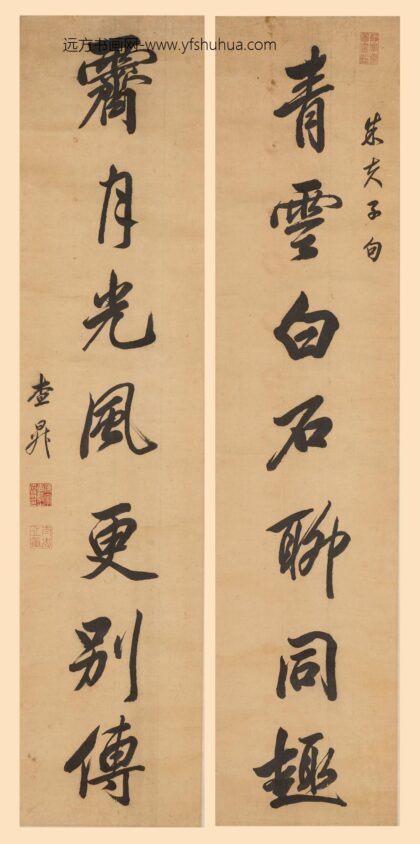 远方书画网-www.yfshuhua.com
朱夫子句
青雲白石聊同趣
霽月光風更別傳
查昇